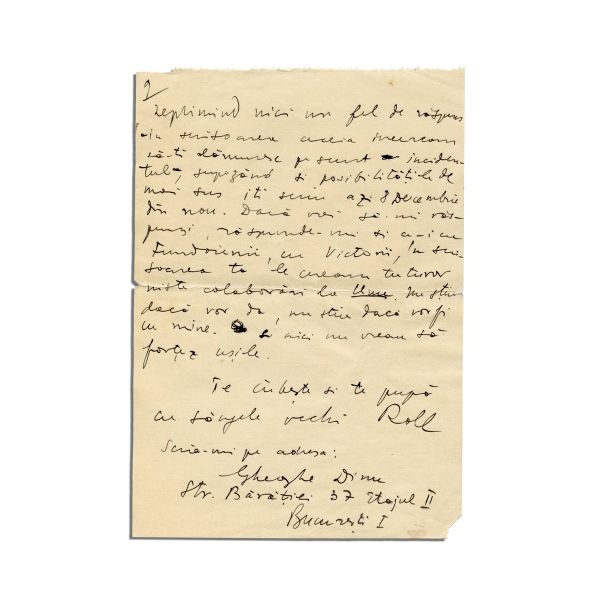 2
neprimind nici un fel de răspuns
în scrisoarea aceia încercam
să-ți lămuresc pe scurt inciden-
tul, supozând și posibilitățile de
mai sus îți scriu azi 8 Decembrie
din nou. Dacă vrei să-mi răs-
punzi, răspunde-mi și ce-i cu
Fundoienii, cu Victorii, în scri-
soarea ta le ceream tuturor
niște colaborări la Unu. Nu știu
dacă vor da, nu știu dacă vor fi
cu mine. și nici nu vreau să
forțez ușile.
Te iubește și te pupă
cu sângele vechi Roll
Scrie-mi pe adresa:
Gheorghe Dinu
Str. Bărăției 37 Etajul II
București I